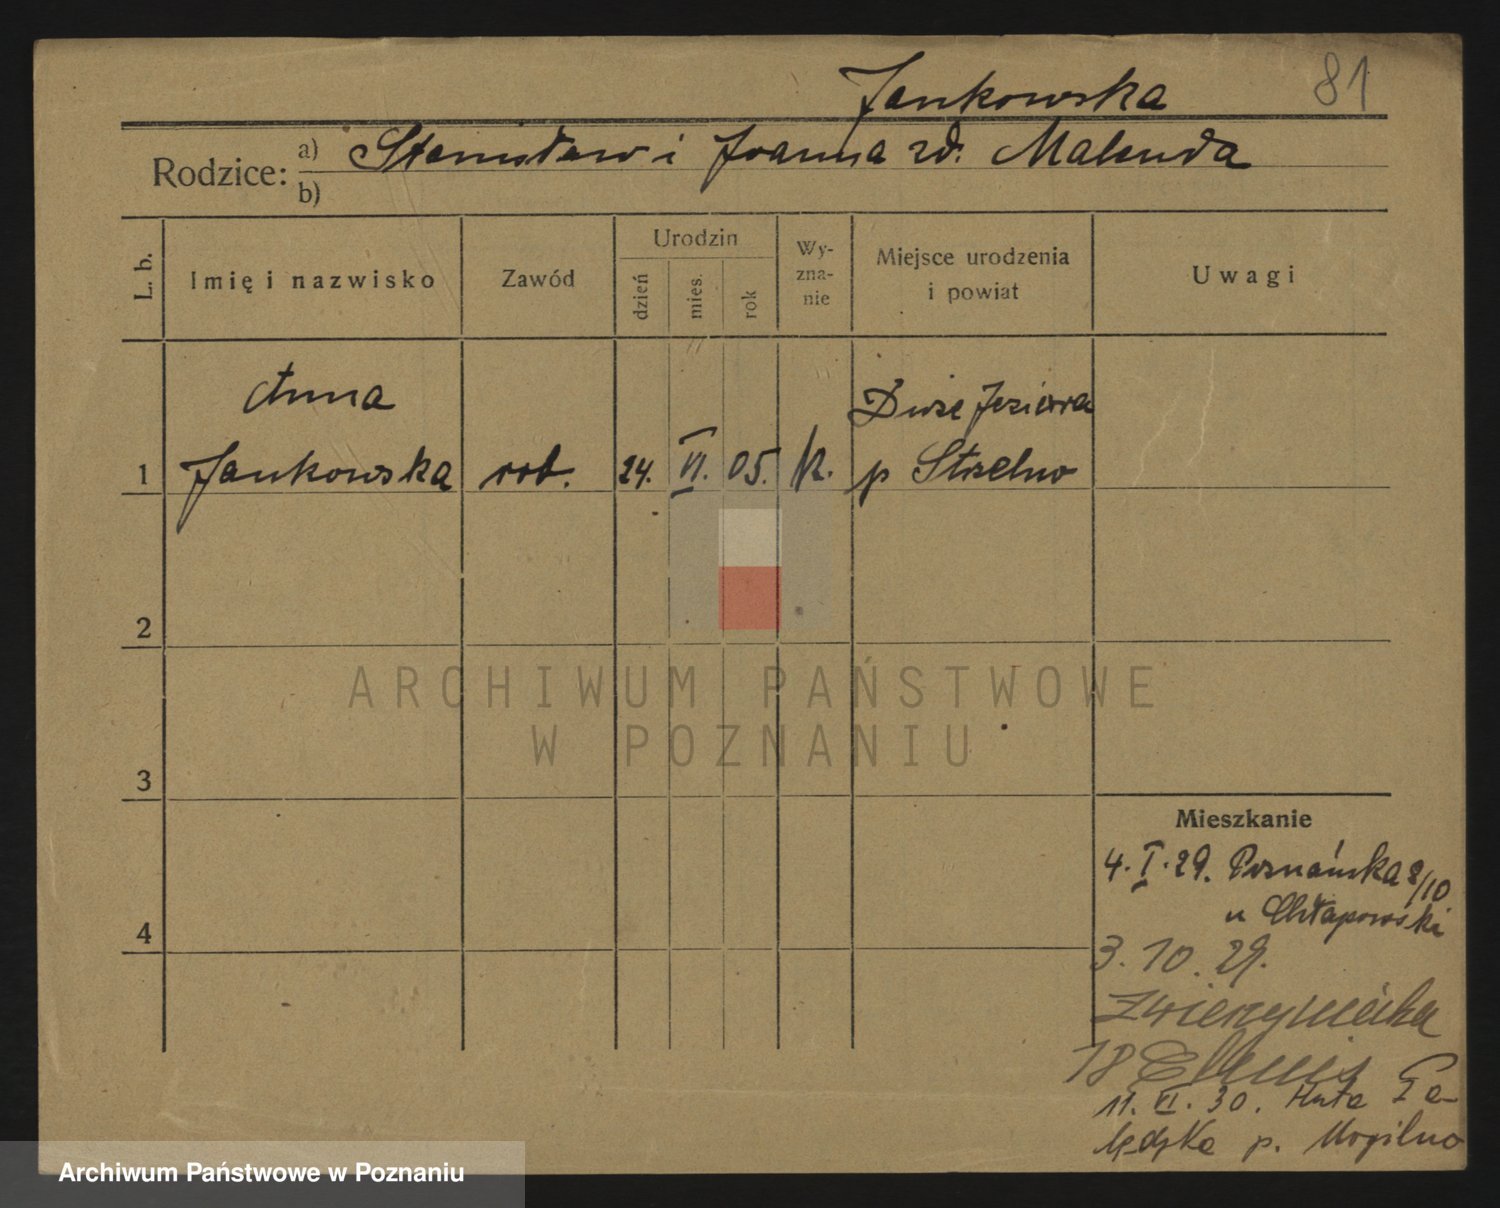 Jankowska 81
Rodzice: a) Stanisław i Joanna zd. Malenda
b)
L. b. Imię i nazwisko Zawód Urodzin dzień mies. rok Wyzna-nie Miejsce urodzenia i powiat Uwagi
Anna Duże Jeziora
1 Jankowska rob. 24. VI. 05. k. p Strzelno
2
3
4
Mieszkanie
4. I. 29. Poznańska 8/10
u Chłapowski
3. 10. 29.
Zwierzyniecka
18
11. VI. 30. Huta Pa-
łędzka p. Mogilno
ARCHIWUM PAŃSTWOWE
W POZNANIU
Archiwum Państwowe w Poznaniu